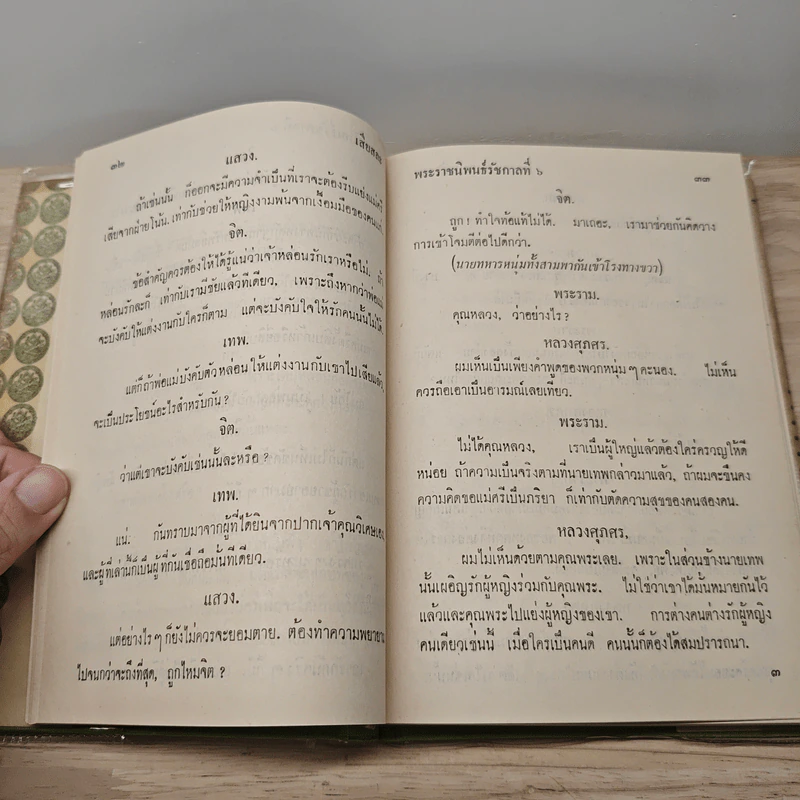 ๓๒
เสียสละ
แสวง.
ถ้าเช่นนั้น ก็ออกจะมีความจำเป็นที่เราจะต้องรีบแย่งแม่ศรี
เสียจากฝ่ายโน้น. เท่ากับช่วยให้หญิงงามพ้นจากเงื้อมมือของคนแก่.
จิต.
ข้อสำคัญควรต้องให้ได้รู้แน่ว่าเจ้าหล่อนรักเราหรือไม่. ถ้า
หล่อนรักละก็ เท่ากับเรามีชัยแล้วทีเดียว, เพราะถึงหากว่าพ่อแม่
จะบังคับให้แต่งงานกับใครก็ตาม แต่จะบังคับใจให้รักคนนั้นไม่ได้.
เทพ.
แต่ก็ถ้าพ่อแม่บังคับตัวหล่อนให้แต่งงานกับเขาไปเสียแล้ว,
จะเป็นประโยชน์อะไรสำหรับกัน ?
จิต.
ว่าแต่เขาจะบังคับเช่นนั้นละหรือ ?
เทพ.
แน่. กันทราบมาจากผู้ที่ได้ยินจากปากเจ้าคุณวิเศษเอง,
และผู้ที่เล่านี้ก็เป็นผู้ที่กันเชื่อถือมั่นทีเดียว.
แสวง.
แต่อย่างไรๆ ก็ยังไม่ควรจะยอมตาย. ต้องทำความพยายาม
ไปจนกว่าจะถึงที่สุด, ถูกไหมจิต ?
พระราชนิพนธ์รัชกาลที่ ๖
๓๓
จิต.
ถูก! ทำใจท้อแท้ไม่ได้. มาเถอะ, เรามาช่วยกันคิดวาง
การเข้าโจมตีต่อไปดีกว่า.
(นายทหารหนุ่มทั้งสามพากันเข้าโรงทางขวา)
พระราม.
คุณหลวง, ว่าอย่างไร ?
หลวงศุภศร.
ผมเห็นเป็นเพียงคำพูดของพวกหนุ่มๆ คะนอง. ไม่เห็น
ควรถือเอาเป็นอารมณ์เลยเทียว.
พระราม.
ไม่ได้คุณหลวง, เราเป็นผู้ใหญ่แล้วต้องใคร่ครวญให้ดี
หน่อย ถ้าความเป็นจริงตามที่นายเทพกล่าวมาแล้ว, ถ้าผมจะขืนคง
ความคิดขอแม่ศรีเป็นภริยา ก็เท่ากับตัดความสุขของคนสองคน.
หลวงศุภศร.
ผมไม่เห็นด้วยตามคุณพระเลย. เพราะในส่วนข้างนายเทพ
นั้นเผอิญรักผู้หญิงร่วมกับคุณพระ. ไม่ใช่ว่าเขาได้มั่นหมายกันไว้
แล้วและคุณพระไปแย่งผู้หญิงของเขา. การต่างคนต่างรักผู้หญิง
คนเดียวเช่นนี้ เมื่อใครเป็นคนดี คนนั้นก็ต้องได้สมปรารถนา.
๓